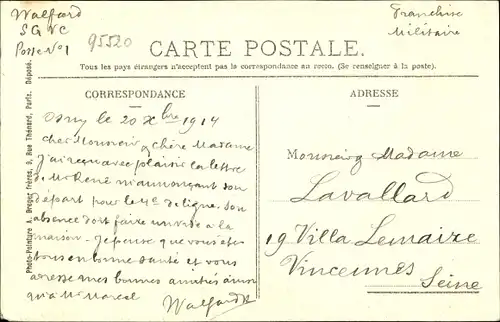 Walford
S G V C
Poste No 1
95520
Franchise
Militaire
CARTE POSTALE.
Tous les pays étrangers n'acceptent pas la correspondance au recto. (Se renseigner à la poste).
CORRESPONDANCE
ADRESSE
Photo-Peinture A. Breger frères, 9, Rue Thénard, Paris. Déposé.
le 20 Xbre 1914
cher Monsieur & chère Madame
J'ai reçu avec plaisir la lettre
de Mr René m'annonçant son
départ pour le 4e de ligne. son
absence doit faire un vide a la
maison. Je pense que vous êtes
tous en bonne santé et vous
adresse mes bonnes amitiés ainsi
qu'a Mr Marcel
Walford
Monsieur & Madame
Lavallard
19 Villa Lemaize
Vincennes
Seine